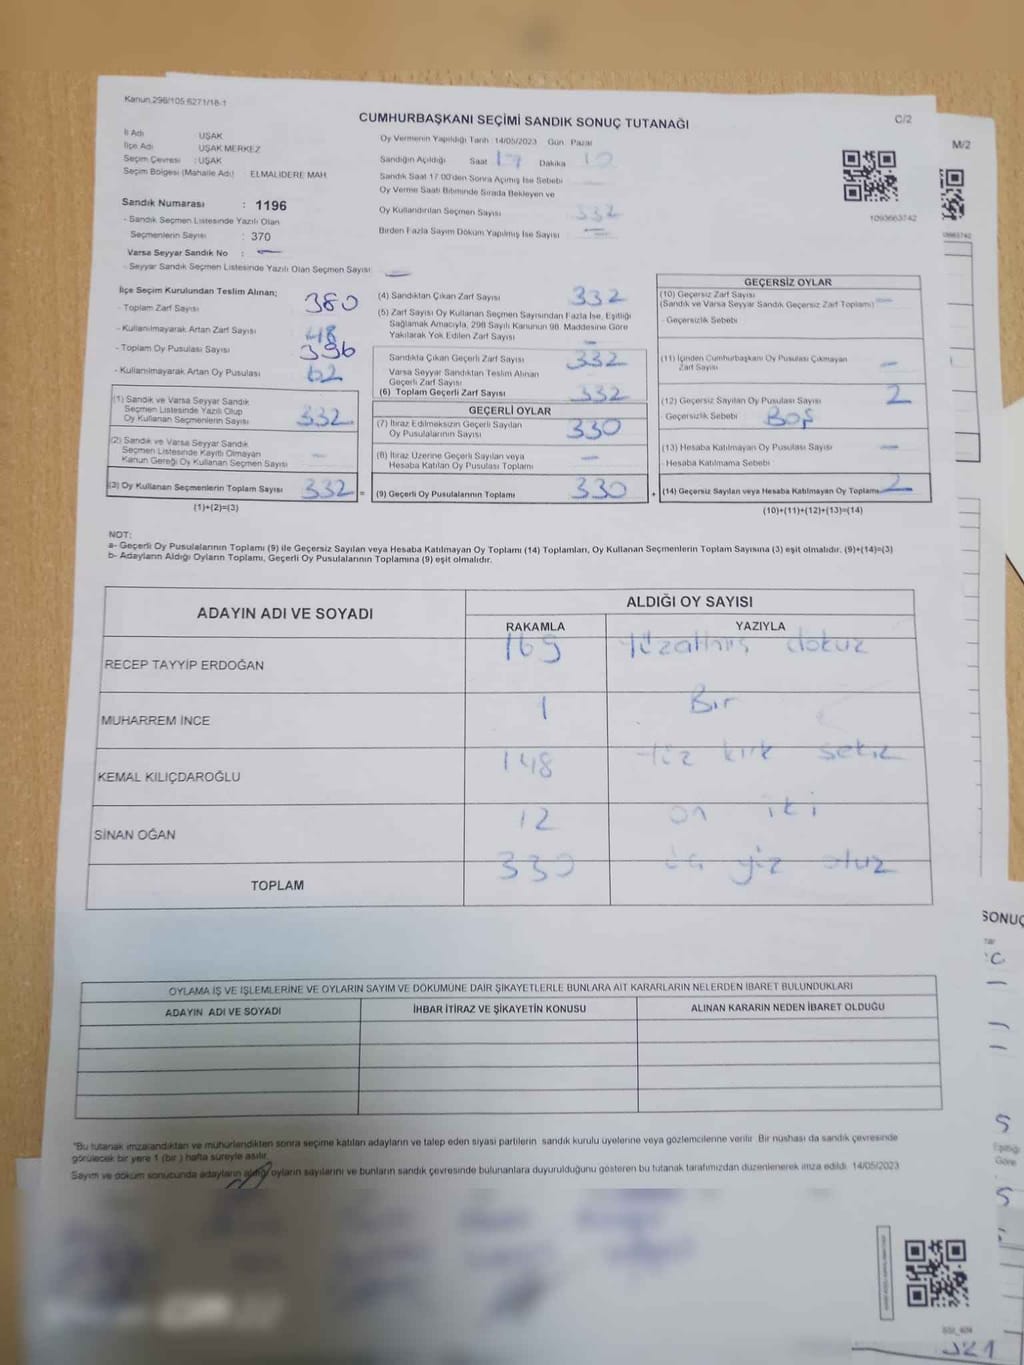 Kanun.296/105.6271/18-1
CUMHURBAŞKANI SEÇİMİ SANDIK SONUÇ TUTANAĞI
C/2
M/2
İl Adı : UŞAK
İlçe Adı : UŞAK MERKEZ
Seçim Çevresi : UŞAK
Seçim Bölgesi (Mahalle Adı) ELMALIDERE MAH
Sandık Numarası : 1196
- Sandık Seçmen Listesinde Yazılı Olan
Seçmenlerin Sayısı : 370
Varsa Seyyar Sandık No : —
- Seyyar Sandık Seçmen Listesinde Yazılı Olan Seçmen Sayısı: —
Oy Vermenin Yapıldığı Tarih :14/05/2023 Gün: Pazar
Sandığın Açıldığı Saat 17 Dakika 10
Sandık Saat 17:00'den Sonra Açılmış İse Sebebi
Oy Verme Saati Bitiminde Sırada Bekleyen ve
Oy Kullandırılan Seçmen Sayısı 332
Birden Fazla Sayım Döküm Yapılmış İse Sayısı —
1093663742
İlçe Seçim Kurulundan Teslim Alınan;
- Toplam Zarf Sayısı 380
- Kullanılmayarak Artan Zarf Sayısı 48
- Toplam Oy Pusulası Sayısı 396
- Kullanılmayarak Artan Oy Pusulası 62
(1) Sandık ve Varsa Seyyar Sandık
Seçmen Listesinde Yazılı Olup
Oy Kullanan Seçmenlerin Sayısı 332
(2) Sandık ve Varsa Seyyar Sandık
Seçmen Listesinde Kayıtlı Olmayan
Kanun Gereği Oy Kullanan Seçmen Sayısı —
(3) Oy Kullanan Seçmenlerin Toplam Sayısı 332 =
(1)+(2)=(3)
(4) Sandıktan Çıkan Zarf Sayısı 332
(5) Zarf Sayısı Oy Kullanan Seçmen Sayısından Fazla İse, Eşitliği
Sağlamak Amacıyla, 298 Sayılı Kanunun 98. Maddesine Göre
Yakılarak Yok Edilen Zarf Sayısı —
Sandıkta Çıkan Geçerli Zarf Sayısı 332
Varsa Seyyar Sandıktan Teslim Alınan
Geçerli Zarf Sayısı
(6) Toplam Geçerli Zarf Sayısı 332
GEÇERLİ OYLAR
(7) İtiraz Edilmeksizin Geçerli Sayılan
Oy Pusulalarının Sayısı 330
(8) İtiraz Üzerine Geçerli Sayılan veya
Hesaba Katılan Oy Pusulası Toplamı —
(9) Geçerli Oy Pusulalarının Toplamı 330 +
GEÇERSİZ OYLAR
(10) Geçersiz Zarf Sayısı —
(Sandık ve Varsa Seyyar Sandık Geçersiz Zarf Toplamı)
Geçersizlik Sebebi
(11) İçinden Cumhurbaşkanı Oy Pusulası Çıkmayan
Zarf Sayısı —
(12) Geçersiz Sayılan Oy Pusulası Sayısı 2
Geçersizlik Sebebi BOŞ
(13) Hesaba Katılmayan Oy Pusulası Sayısı —
Hesaba Katılmama Sebebi
(14) Geçersiz Sayılan veya Hesaba Katılmayan Oy Toplamı 2
(10)+(11)+(12)+(13)=(14)
NOT:
a- Geçerli Oy Pusulalarının Toplamı (9) ile Geçersiz Sayılan veya Hesaba Katılmayan Oy Toplamı (14) Toplamları, Oy Kullanan Seçmenlerin Toplam Sayısına (3) eşit olmalıdır. (9)+(14)=(3)
b- Adayların Aldığı Oyların Toplamı, Geçerli Oy Pusulalarının Toplamına (9) eşit olmalıdır.
ADAYIN ADI VE SOYADI ALDIĞI OY SAYISI
RAKAMLA YAZIYLA
RECEP TAYYİP ERDOĞAN 169 Yüzaltmış dokuz
MUHARREM İNCE 1 Bir
KEMAL KILIÇDAROĞLU 148 Yüz kırk sekiz
SİNAN OĞAN 12 on iki
TOPLAM 330 üç yüz otuz
OYLAMA İŞ VE İŞLEMLERİNE VE OYLARIN SAYIM VE DÖKÜMÜNE DAİR ŞİKAYETLERLE BUNLARA AİT KARARLARIN NELERDEN İBARET BULUNDUKLARI
ADAYIN ADI VE SOYADI İHBAR İTİRAZ VE ŞİKAYETİN KONUSU ALINAN KARARIN NEDEN İBARET OLDUĞU
*Bu tutanak imzalandıktan ve mühürlendikten sonra seçime katılan adayların ve talep eden siyasi partilerin sandık kurulu üyelerine veya gözlemcilerine verilir. Bir nüshası da sandık çevresinde
görülecek bir yere 1 (bir ) hafta süreyle asılır.
Sayım ve döküm sonucunda adayların aldığı oyların sayılarını ve bunların sandık çevresinde bulunanlara duyurulduğunu gösteren bu tutanak tarafımızdan düzenlenerek imza edildi. 14/05/2023
SONUÇ
321